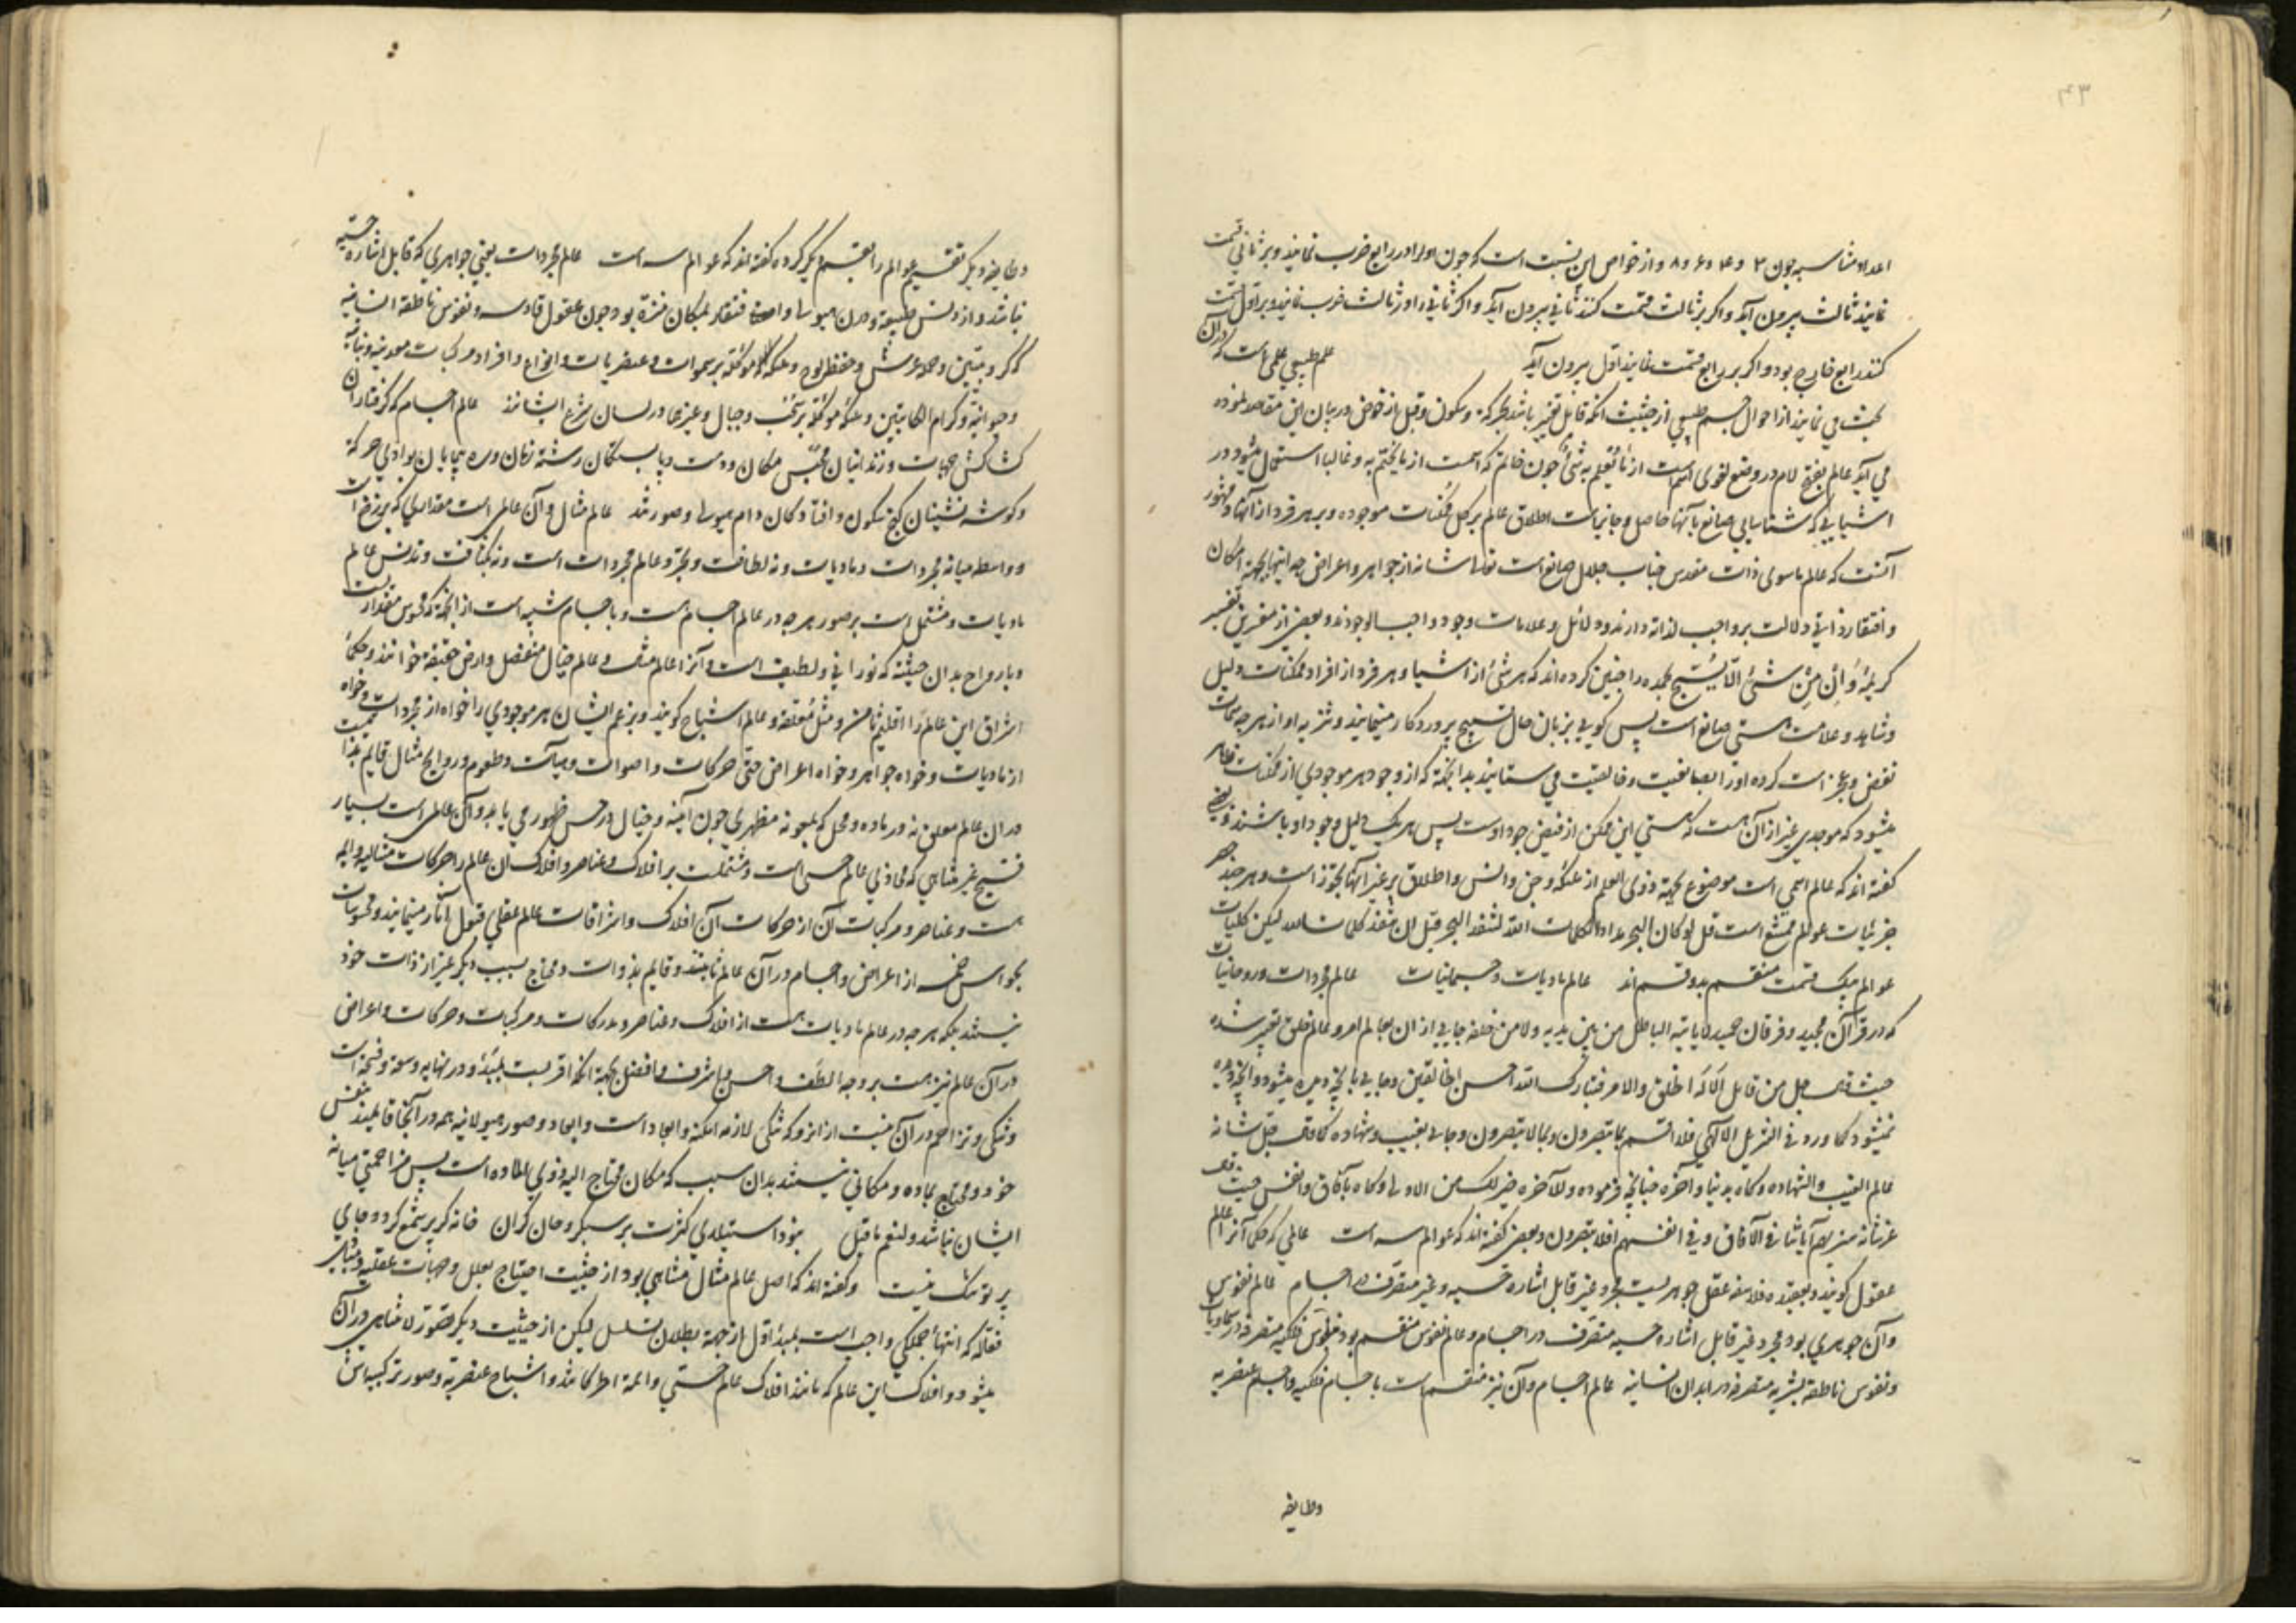 ۴۳
اعداد متناسبه چون ۲ و ۴ و ۶ و ۸ و از خواص این نسبت است که چون اول را در رابع ضرب نمایند و بر ثانی قسمت
نمایند ثالث بیرون آید و اگر بر ثالث قسمت کنند ثانی بیرون آید و اگر ثانی را در ثالث ضرب نمایند و بر اول قسمت
کنند رابع خارج بود و اگر بر رابع قسمت نمایند اول بیرون آید علم طبیعی علمی است که در آن
بحث می نمایند از احوال جسم طبیعی از حیثیت آنکه قابل تغیر باشد بحرکة و سکون و قبل از خوض در بیان این مقاصد نموده
می آید عالم بفتح لام در وضع لغوی اسم است از ما یعلم به شیٔ چون خاتم که اسمست از ما یختم به و غالبا استعمال میشود در
اشیایی که شناسایی صانع بآنها حاصل و جایز است اطلاق عالم بر کل ممکنات موجوده و بر هر فرد از آنها و مشهور
آنست که عالم ماسوی ذات مقدس جناب جلال صانع است تعالی شانه از جواهر و اعراض چه اینها بجهة امکان
و افتقار ذاتی دلالت بر واجب لذاته دارند و دلائل و علامات وجود واجب الوجودند و بعضی از مفسرین تفسیر
کریمهٔ وَاِنْ مِنْ شیٔ الّا یُسَبّح بحمده را چنین کرده اند که هر شیٔ از اشیا و هر فرد از افراد ممکنات دلیل
و شاهد و علامت هستی صانع است پس گویی بزبان حال تسبیح پروردگار مینمایند و تنزیه او از هر چه سمات
نقص و عجز است کرده او را بصانعیت و خالقیت می ستایند بدانجهة که از وجود هر موجودی از ممکنات ظاهر
میشود که موجدی غیر از آن هست که هستی این ممکن از فیض جود اوست پس هر یک دلیل وجود او باشند و بعضی
گفته اند که عالم اسمی است موضوع بجهة ذوی العلم از ملئکه و جن و انس و اطلاق بر غیر آنها بتجوز است و هر چند حصر
جزئیات عوالم ممتنع است قل لو کان البحر مدادا لکلمات الله لنفد البحر قبل ان تنفد کلمات الله لیکن کلیات
عوالم بیک قسمت منقسم بدو قسم اند عالم مادیات و جسمانیات عالم مجردات و روحانیات
که در قرآن مجید و فرقان حمید لا یاتیه الباطل من بین یدیه و لا من خلفه جایی از ان بعالم امر و عالم خلق تعبیر شده
حیث قال جل من قایل اَلَا لَه الخلق والامر فتبارک الله احسن الخالقین و جایی بآنچه دیده میشود و آنچه دیده
نمیشود کما ورد فی التنزیل الالهی فلا اقسم بما تبصرون و بما لا تبصرون و جایی بغیب و شهاده کما قال جل شانه
عالم الغیب والشهاده و گاه بدنیا و آخره چنانچه فرموده وللآخره خیر لک من الاولی و گاه بآفاق و انفس حیث قال
عز شانه سنریهم آیاتنا فی الآفاق و فی انفسهم افلا تبصرون و بعضی گفته اند که عوالم سه است عالمی که حکما آنرا عالم
عقول گویند و بعقیده فلاسفه عقل جوهریست مجرد غیر قابل اشاره حسیه و غیر متصرف در اجسام عالم نفوس
و آن جوهری بود مجرد غیر قابل اشاره حسیه متصرف در اجسام و عالم نفوس منقسم بود بنفوس فلکیه متصرفه در سماویات
و نفوس ناطقه بشریه متصرفه در ابدان انسانیه عالم اجسام و آن نیز منقسم است باجسام فلکیه و اجسام عنصریه
وطایفه
وطایفه دیگر تقسیم عوالم را بقسم دیگر کرده گفته اند که عوالم سه است عالم مجردات یعنی جواهری که قابل اشاره حسیه
نباشد و از دنس طبیعة و درن هیولا و افتقار بمکان منزه بود چون عقول قادسه و نفوس ناطقه انسانیه
کروبیین و حمله عرش و حفظه لوح و ملئکه موکله بر سموات و عنصریات و انواع و افراد مرکبات معدنیه و نباتیه
و حیوانیه و کرام الکاتبین و ملئکه موکله بر سحب و جبال و غیرها در لسان شرع ایشانند عالم اجسام که گرفتاران
کشاکش جهات و زندانیان محبس مکان و دست و پا بستگان رشته زمان و ره پیمایان بوادی حرکة
و گوشه نشینان کنج سکون و افتادگان دام هیولا و صورتند عالم مثال و آن عالمی است مقداری که برزخ است
و واسطه میانه مجردات و مادیات و نه لطافت و تجرد عالم مجردات است و نه بکثافت و تدنس عالم
مادیات و مشتمل است بر صور هر چه در عالم اجسام است و باجسام شبیه است از آنجهة که محسوس مقداریست
و بارواح بدان حیثیه که نورانی و لطیف است و آنرا عالم مثال و عالم خیال منفصل و ارض حقیقه خوانند و حکمأ
اشراق این عالم را اقلیم ثامن و مثل معلقه و عالم اشباح گویند و بزعم ایشان هر موجودی را خواه از مجردات و خواه
از مادیات و خواه جواهر و خواه اعراض حتی حرکات و اصوات و هیأت و طعوم و روایح مثال قایم بذاتیست
در ان عالم معلق نه در ماده و محل که بمعونه مظهری چون آینه و خیال در حس ظهور می یابد و آن عالمی است بسیار
فسیح غیر متناهی که محاذی عالم حسی است و مشتملست بر افلاک و عناصر و افلاک ان عالم را حرکات مثالیه دایمه
هست و عناصر و مرکبات آن از حرکات آن افلاک و اشراقات عالم عقلی قبول آثار مینمایند و محسوسات
بحواس خمسه از اعراض و اجسام در آن عالم ثابتند و قایم بذوات و محتاج بسبب دیگر غیر از ذات خود
نیستند بلکه هر چه در عالم مادیات هست از افلاک و عناصر و مدرکات و مرکبات و حرکات و اعراض
در آن عالم نیز هست بر وجه الطف و احسن و اشرف و افضل بجهة آنکه اقربست بمبدأ و در نهایه وسعة و فسحة است
و تنگی و تزاحم در آن نیست از انرو که تنگی لازمه امکنه و ابعاد است و ابعاد و صور هیولانیه همه در آنجا قایمند بنفس
خود و محتاج بماده و مکانی نیستند بدان سبب که مکان محتاج الیه ذوی الماده است پس مزاحمتی میانه
ایشان نباشد و لنعم ما قیل نبود استیلای کثرت بر سبکروحان گران خانه گر پر شمع گردد جای
پرتو تنگ نیست و گفته اند که اصل عالم مثال متناهی بود از حیثیت احتیاج بعلل و جهات عقلیه و مبادی
فعاله که انتهأ جملگی واجب است بمبدأ اول از جهة بطلان تسلسل لیکن از حیثیت دیگر تصور لا متناهی در آن
میشود و افلاک این عالم که مانند افلاک عالم حسی دائمة الحرکاتند و اشباح عنصریه و صور ترکیبیه اش